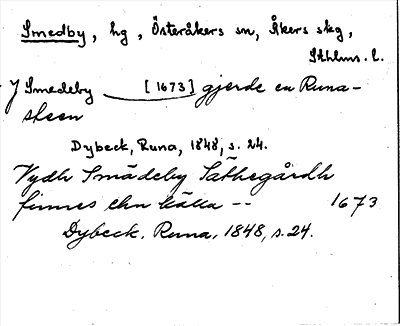 Smedby, hg, Österåkers sn, Åkers skg,
Sthlms. l.
J Smedeby [1673] gjerde en Runa-
steen
Dybeck, Runa, 1848, s. 24.
Vydh Smädeby Säthegårdh
finnes ehn källa -- 1673
Dybeck. Runa, 1848, s. 24.